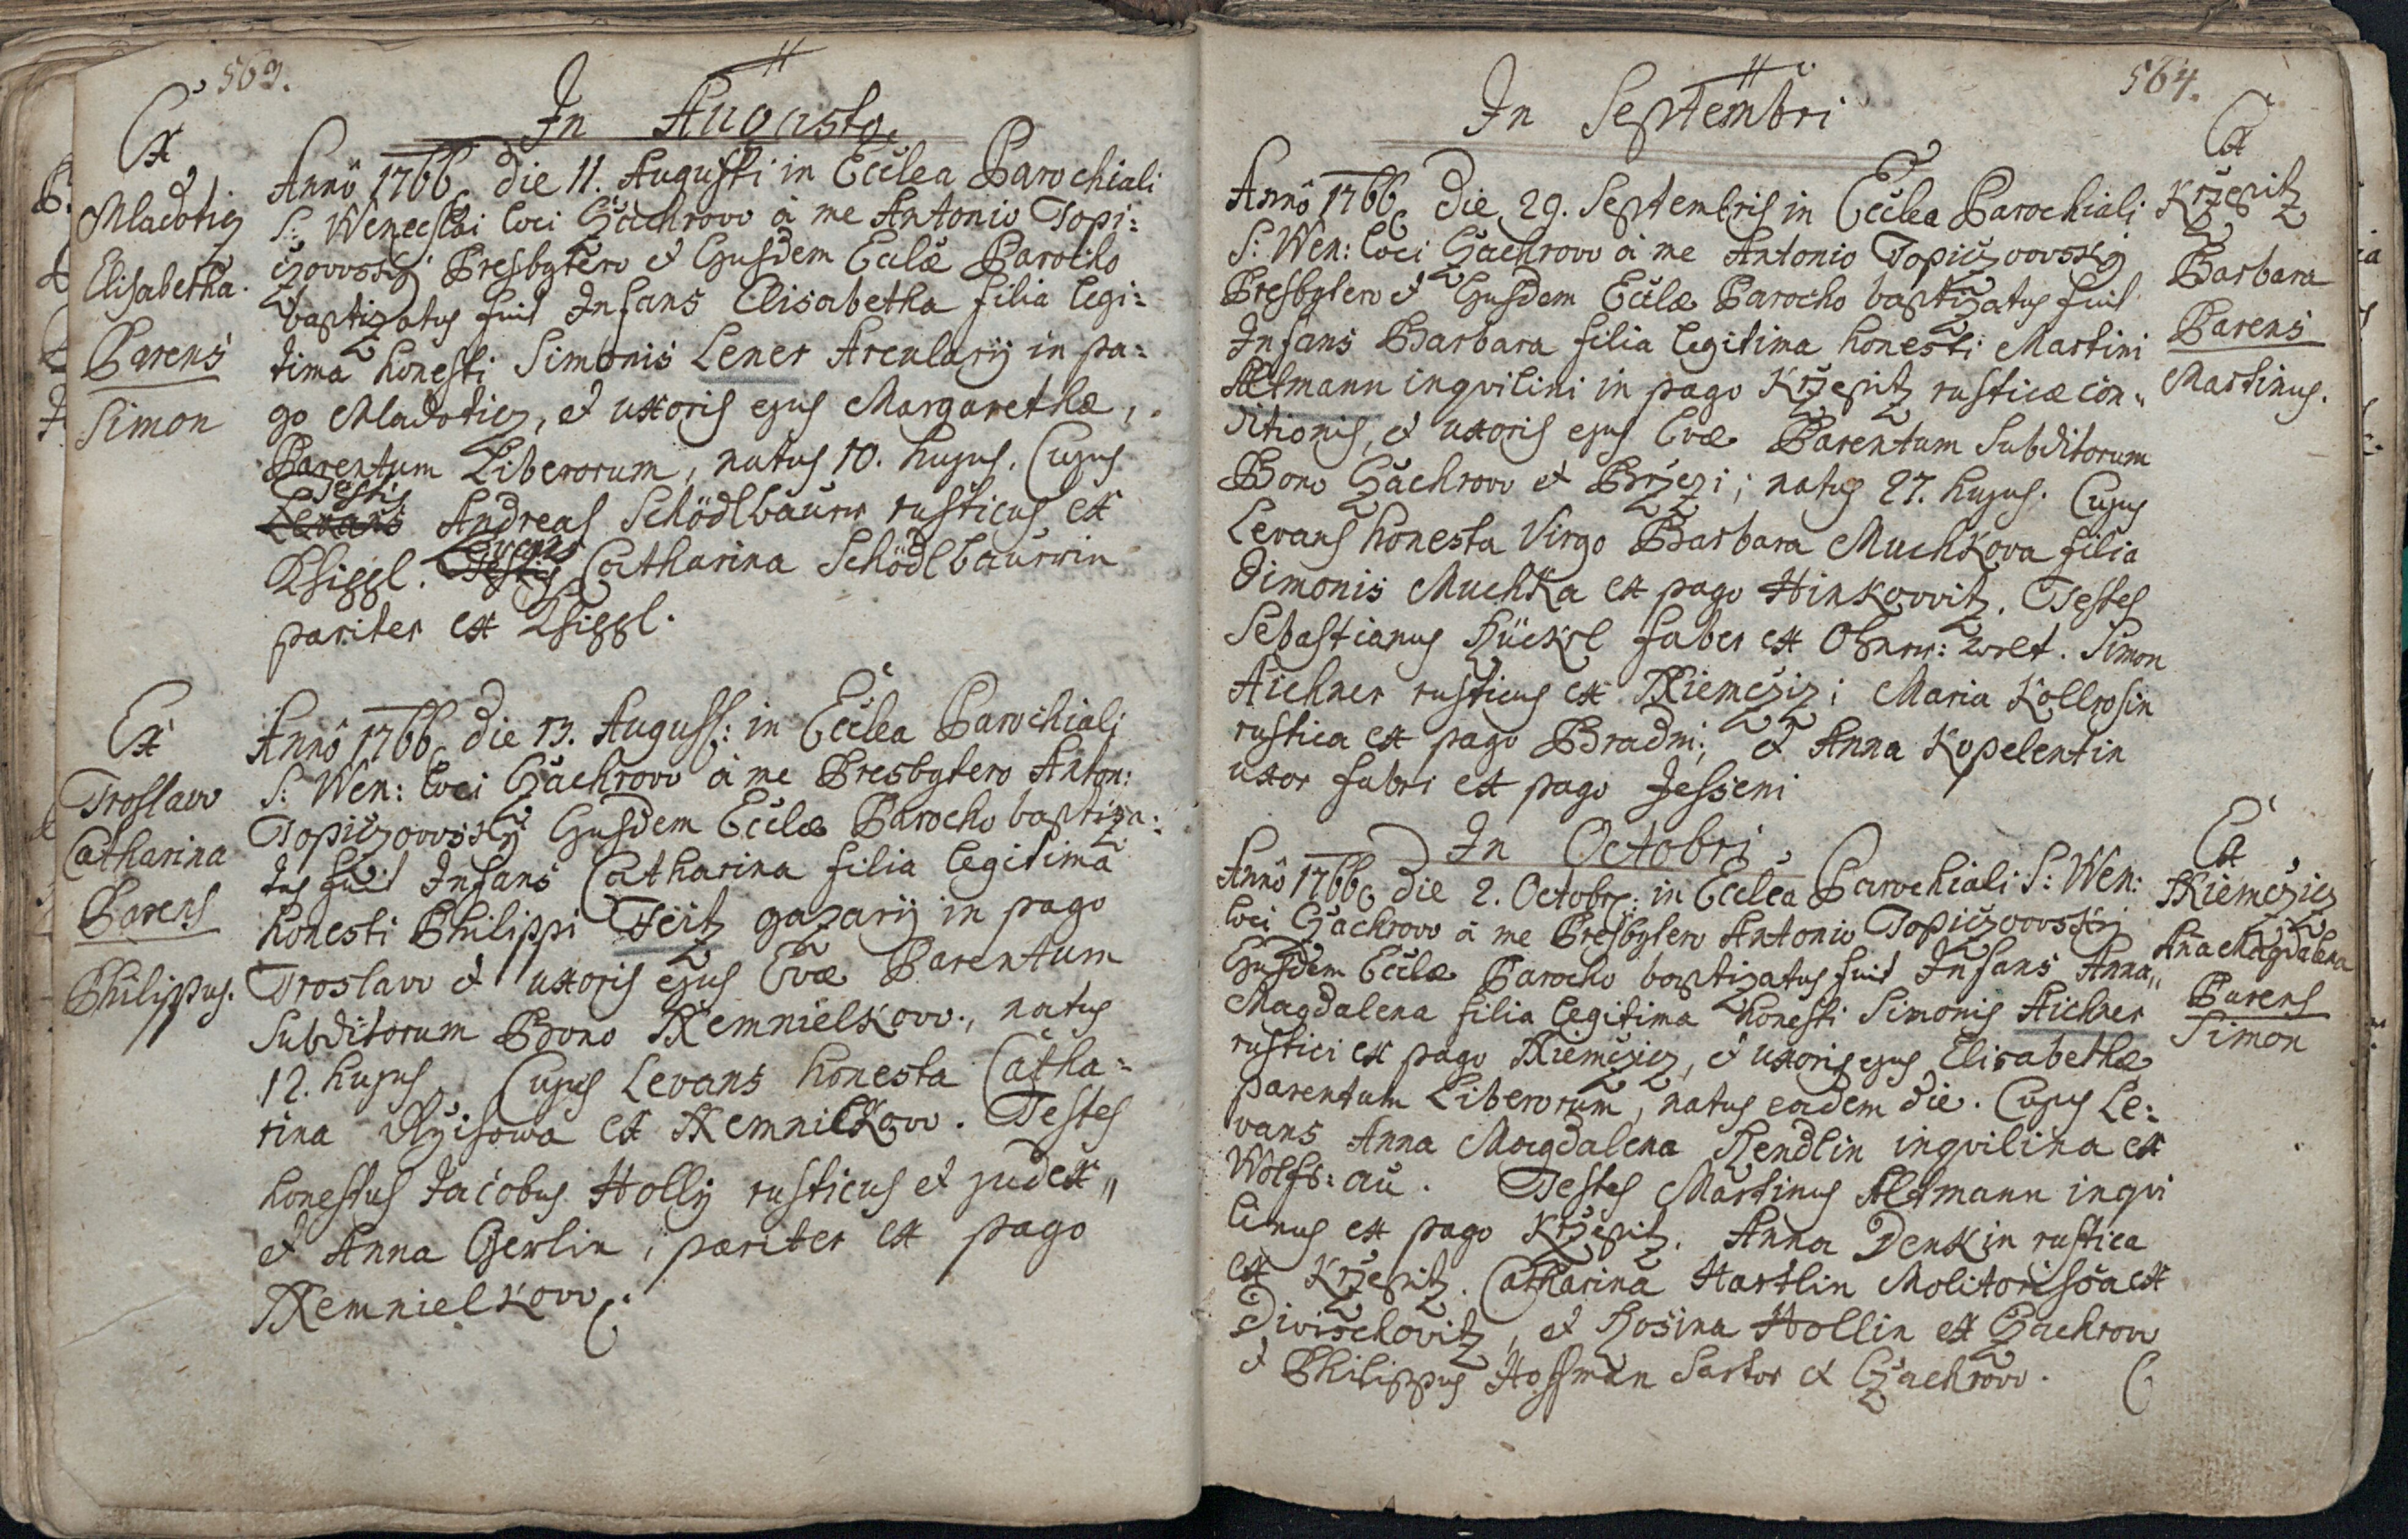 563.
In Augusto.
Ex
Mladotiz
Elisabetha.
Parens
Simon
Anno 1766 die 11. Augusti in Ecclea Parochiali
S: Wenceslai loci Czachrow à me Antonio Topi:
czowsky Presbytero et Ejusdem Eccle Parocho
baptizatus fuit Infans Elisabetha filia legi:
tima honesti Simonis Lener Arcularij in pa:
go Mladotiz, et uxoris ejus Margarethæ,
Parentum Liberorum, natus 10. hujus. Cujus
Testis
Levans Andreas Schödlbaurr rusticus ex
Levans
Testis Catharina Schödlbaurrin
pariter ex
Ex
Troslaw
Catharina
Parens
Philippus.
Anno 1766 die 13. August: in Ecclea Parochiali
S: Wen: loci Czachrow à me Presbytero Anton:
Topiczowsky Ejusdem Eccle Parocho baptiza:
tus fuit Infans Catharina filia legitima
honesti Philippi Feitz gazarij in pago
Troslaw et uxoris ejus Evæ Parentum
Subditorum Bono Nemnielkow., natus
12. hujus. Cujus Levans honesta Catha:
rina ex Nemnielkow. Testes
honestus Jacobus Holly rusticus et judex,,
et Anna Gerlin, pariter ex pago
Nemnielkow.
564.
In Septembri
Ex
Krzepitz
Barbara
Parens
Martinus.
Anno 1766 die 29. Septembris in Ecclea Parochiali
S: Wen: loci Czachrow à me Antonio Topiczowsky
Presbytero et Ejusdem Eccle Parocho baptizatus fuit
Infans Barbara filia legitima honesti Martini
Altmann inqvilini in pago Krzepitz rusticæ con,,
ditionis, et uxoris ejus Evæ Parentum Subditorum
Bono Czachrow et Brzezi; natus 27. hujus. Cujus
Levans honesta Virgo Barbara Muchkova filia
Simonis Muchka ex pago Hinkowitz. Testes
Sebastianus Rückl faber ex Simon
Aichner rusticus ex Niemcziz; Maria Kollrosin
rustica ex pago Bradni; et Anna Kopelentin
uxor fabri ex pago Jesseni
In Octobri
Ex
Niemcziz
Anna Magdalena
Parens
Simon
Anno 1766 die 2. Octobr: in Ecclea Parochiali S: Wen:
loci Czachrow à me Presbytero Antonio Topiczowsky
Ejusdem Eccle Parocho baptizatus fuit Infans Anna,,
Magdalena filia legitima honesti Simonis Aichner
rustici ex pago Niemcziz, et uxoris ejus Elisabethæ
parentum Liberorum, natus eadem die. Cujus Le:
vans Anna Magdalena Rendlin inqvilina ex
Wolfs:au. Testes Martinus Altmann inqvi
linus ex pago Krzepitz. Anna Denkin rustica
ex Krzepitz. Catharina Hartlin Molitorissa ex
Divischovitz, et Rosina Hollin ex Czachrow
et Philippus Hoffman Sartor ex Czachrow.